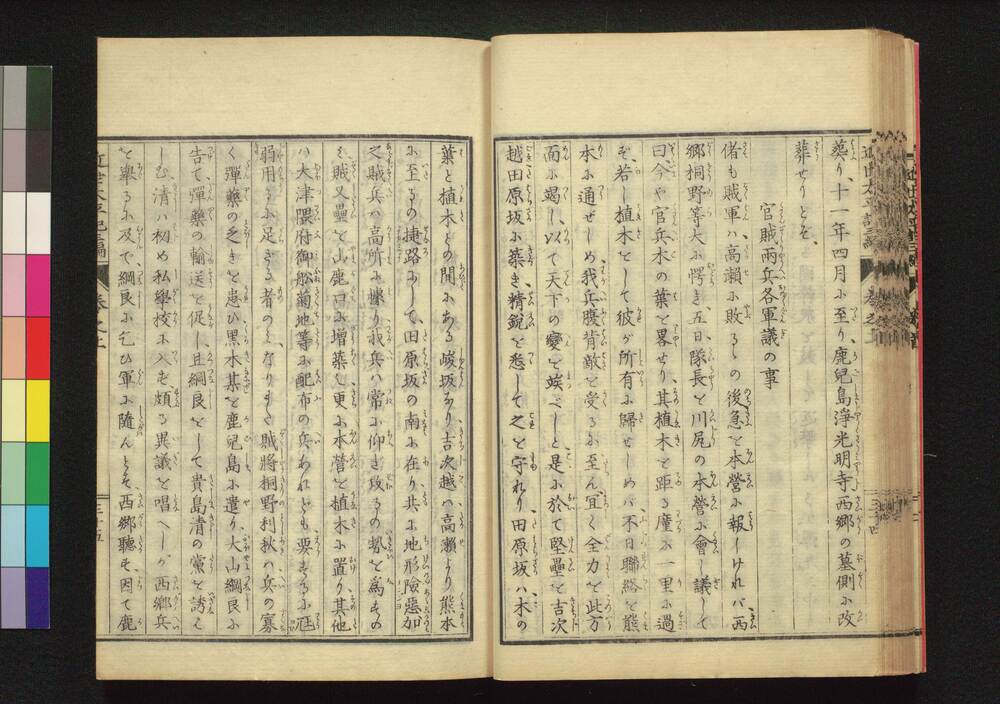 葵り、十一年四月ふ至り鹿兒島淨光明寺西郷の墓側ふ改
葬せりとぞ、
官賊兩兵各軍議の事
偖も賊軍ハ高瀬ふ敗るゝの後急を本營ふ報しけれバ西
郷桐野等大ふ愕き五日、隊長を川尻の本營ふ會し議して
曰今や官兵木の葉を畧せり、其植木を距る廑ふ一里ふ過
ぞ、若し植木をして彼が所有ふ歸せしめバ不日聯絡を熊
本ふ通ぜしめ我兵腹背敵を受るふ至ん宜く全力を此方
面ふ竭し、以て天下の變を竢べしと是ふ於て堅壘を吉次
越田原坂ふ築き精鋭を悉して之を守れり田原坂ハ木の
葉と植木との間ふある峻坂なり吉次越ハ高瀬より熊本
ふ至るの捷路ふして、田原坂の南ふ在り共ふ地形險惡加
之賊兵ハ高所ふ據り我兵ハ常ふ仰ぎ攻るの勢を爲もの
賊又壘を山鹿口ふ增築し更ふ本營を植木ふ置り其他
ハ大津隈府御船菊地等ふ配布の兵あれども要するふ尫
弱用るふ足ざる者のみなり賊將桐野利秋ハ兵の寡
く彈藥の乏きを患ひ黒木某を鹿兒島ふ遣り、大山綱良ふ
告て、彈藥の輸送を促し且綱良をして貴島清の黨を誘ハ
しむ、清ハ初め私學校ふ入も、頗る異議を唱へしが西郷兵
を擧るふ及で、綱良ふ乞ひ軍ふ隨んとも西郷聽も因て鹿
卷之上
三十五